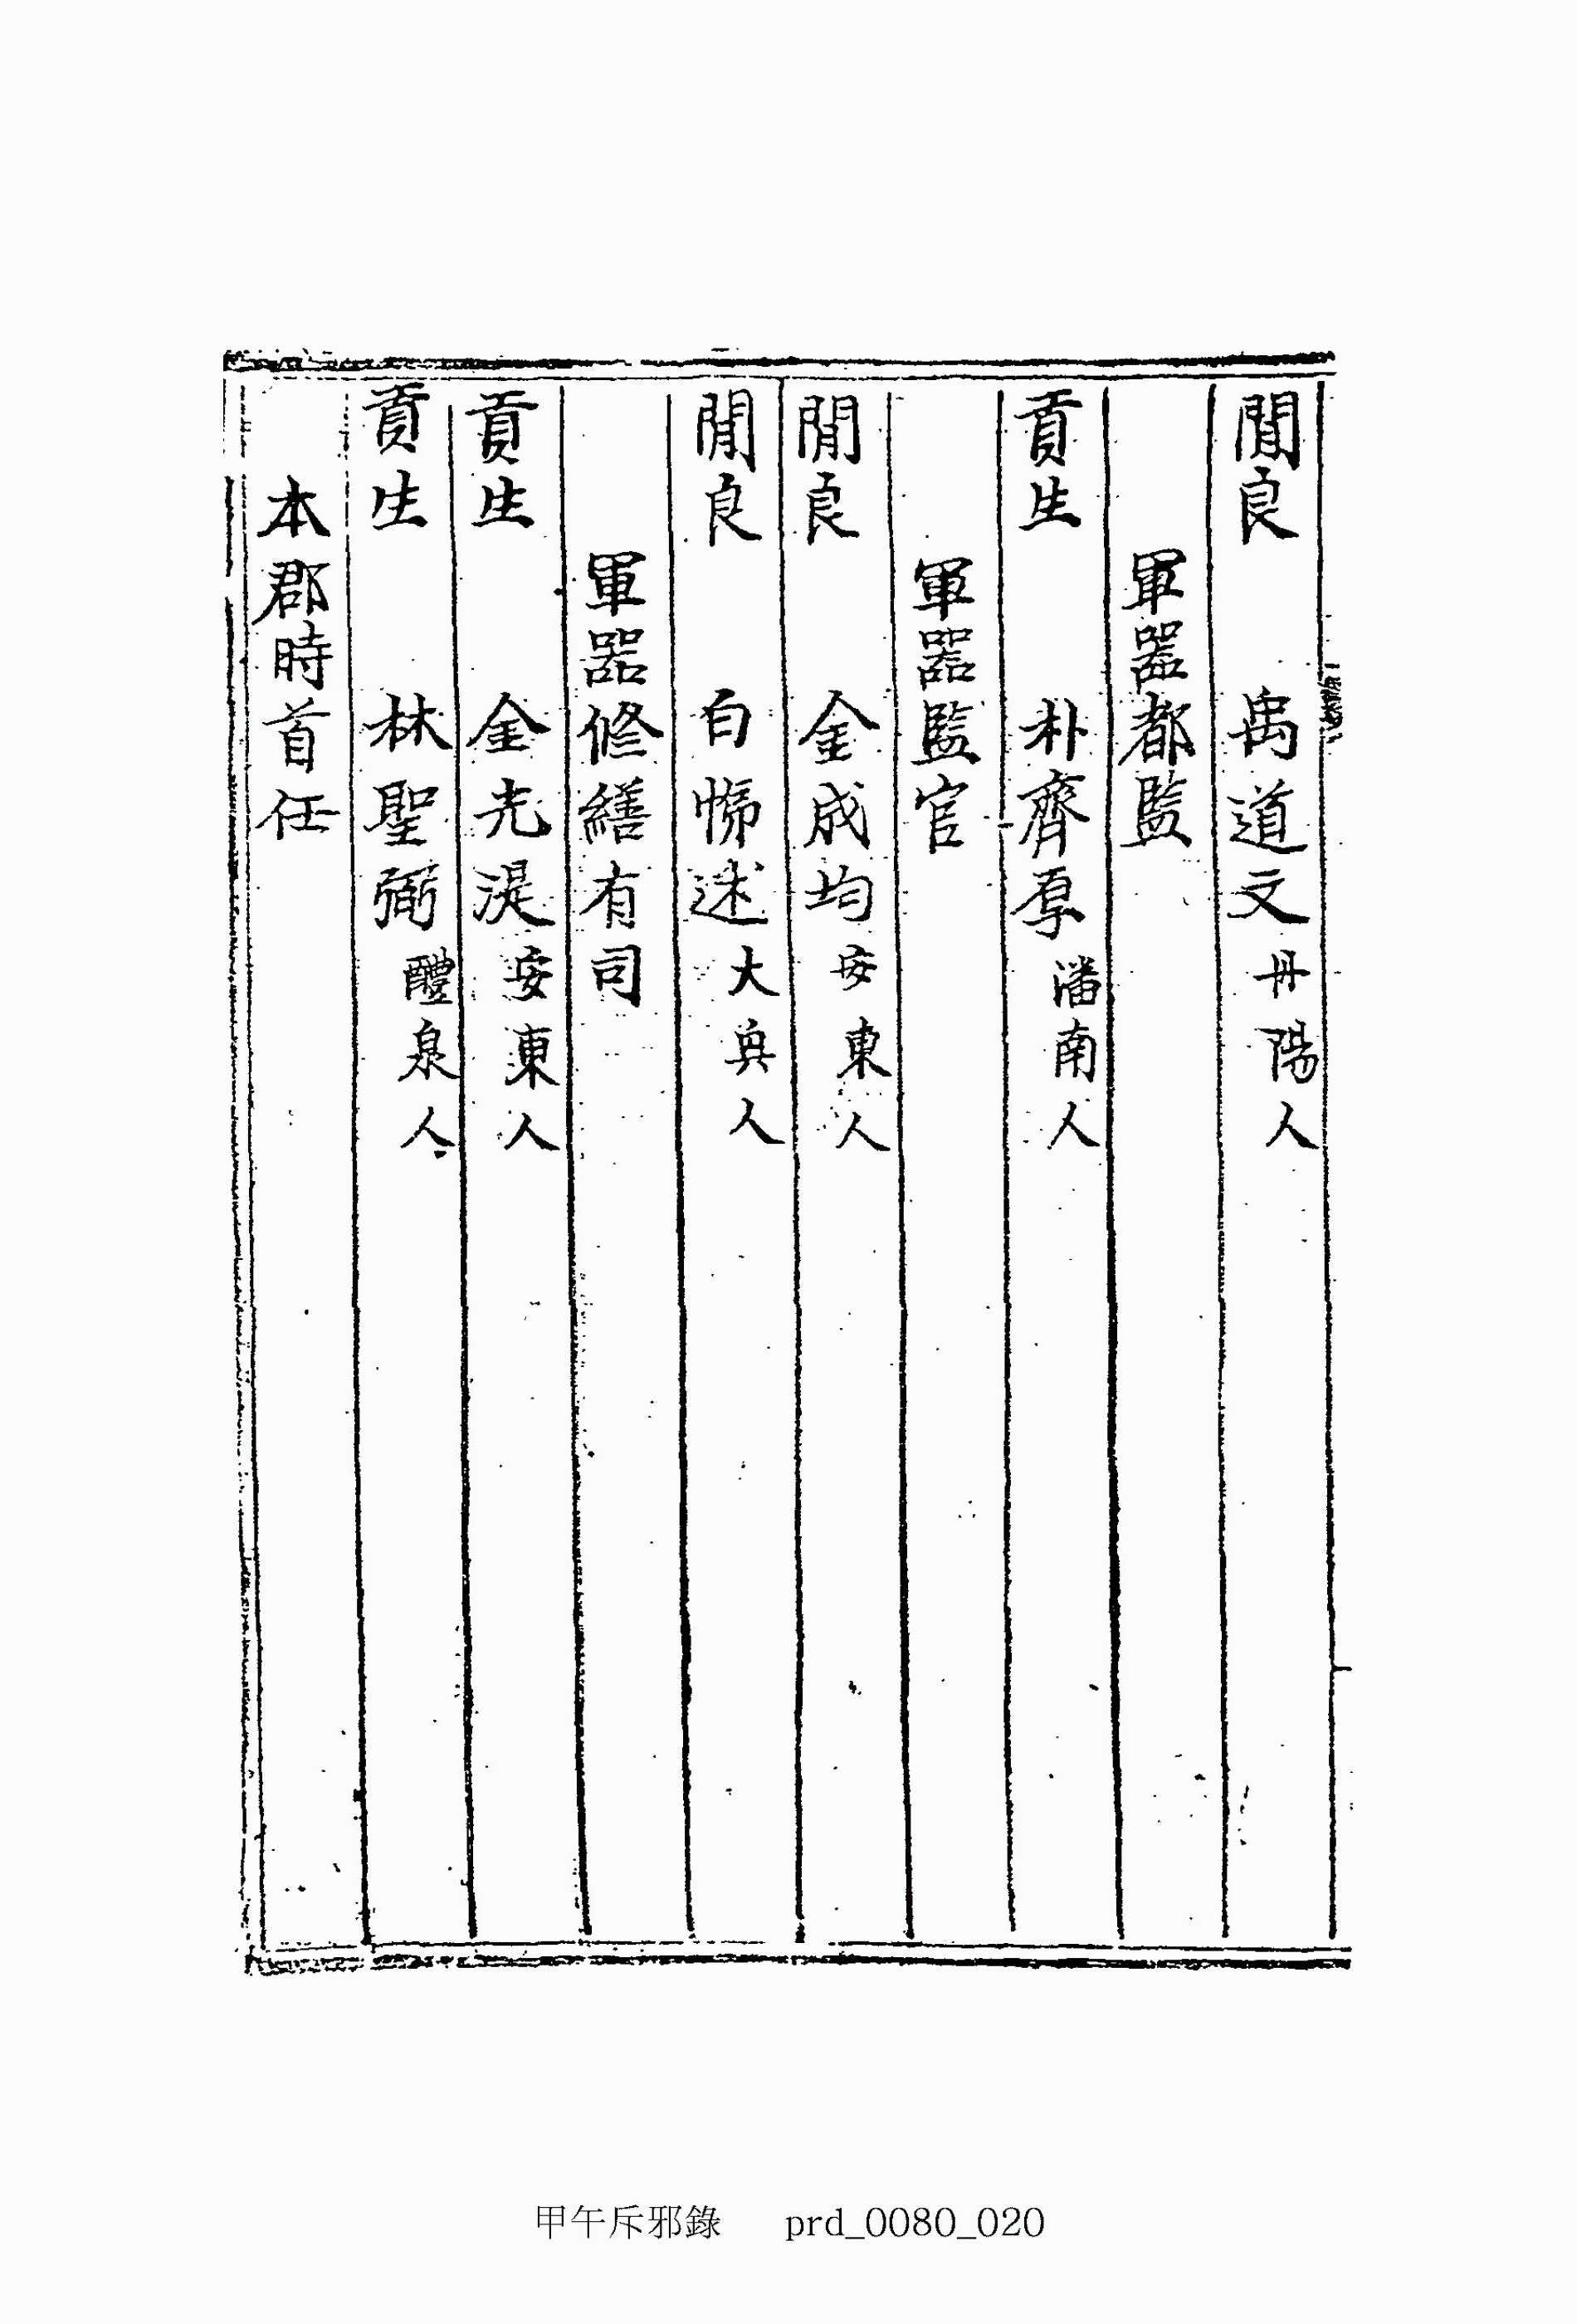 閒良 禹道文 丹陽人
軍器都監
貢生 朴齊厚 潘南人
軍器監官
閒良 金成均 安東人
閒良 白悌述 大興人
軍器修繕有司
貢生 金光湜 安東人
貢生 林聖弼 醴泉人
本郡時首任
甲午斥邪錄 prd_0080_020